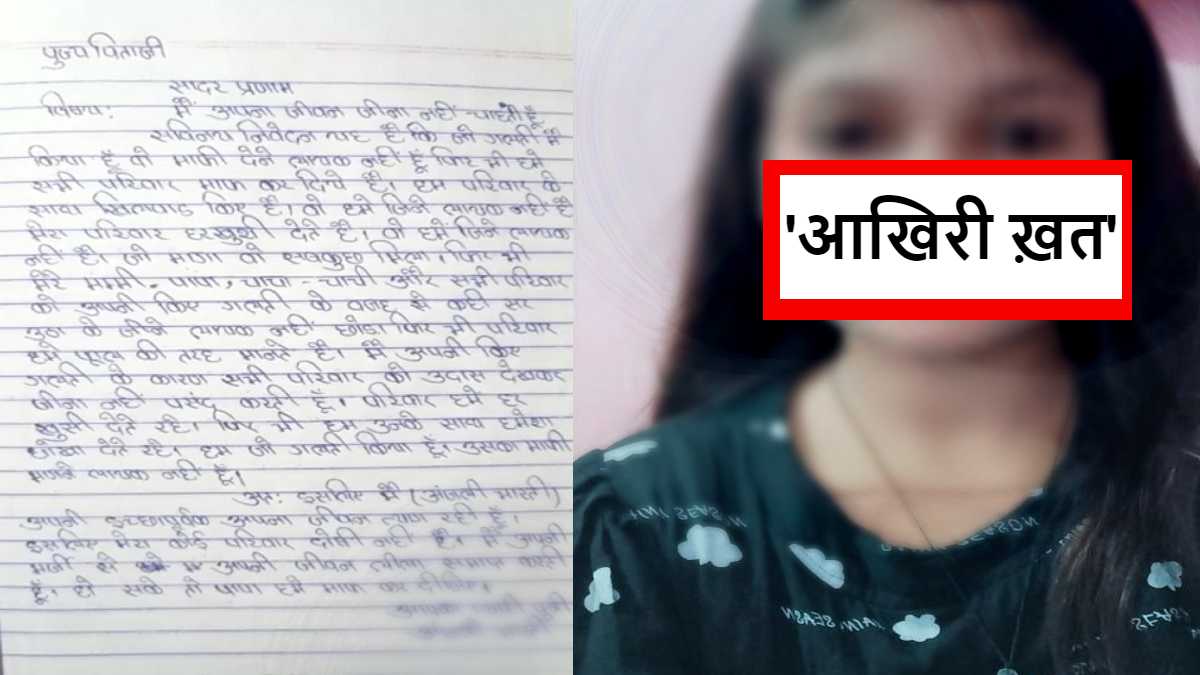 पुज्य पिताजी
सादर प्रणाम
विषय: मैं अपना जीवन जीना नहीं चाहती हूँ
सविनय निवेदन यह है कि जो गलती मैं
किया हूँ वो माफी देने लायक नहीं हूँ फिर भी हमें
सभी परिवार माफ कर दिये हैं। हम परिवार के
साथ खिलवाड़ किए हैं। वो हमें जिने लायक नहीं है
मेरा परिवार हर खुशी देते है। वो हमें जिने लायक
नहीं है। जो मांगा वो सबकुछ मिला, फिर भी
मेरे मम्मी-पापा, चाचा-चाची और सभी परिवार
को अपनी किए गलती के वजह से कही सर
उठा के जीने लायक नहीं छोडा फिर भी परिवार
हमें की तरह मानते हैं। मैं अपनी किए
गलती के कारण सभी परिवार को उदास देखकर
जीना नहीं पसंद करती हूँ। परिवार हमें हर
खुशी देते रहे। फिर भी हम उनके साथ हमेशा
धोखा देते रहे। हम जो गलती किया हूँ। उसका माफी
लायक नहीं हूँ।
अत: इसलिए मैं (भारती)
अपनी इच्छापूर्वक अपना जीवन त्याग रही हूँ।
इसलिए मेरा कोई परिवार दोषी नहीं है। मैं अपनी
मर्जी से अपनी जीवन लीला समाप्त करती
हूँ, हो सके तो पापा हमें माफ कर दीजिए।
'आखिरी ख़त'